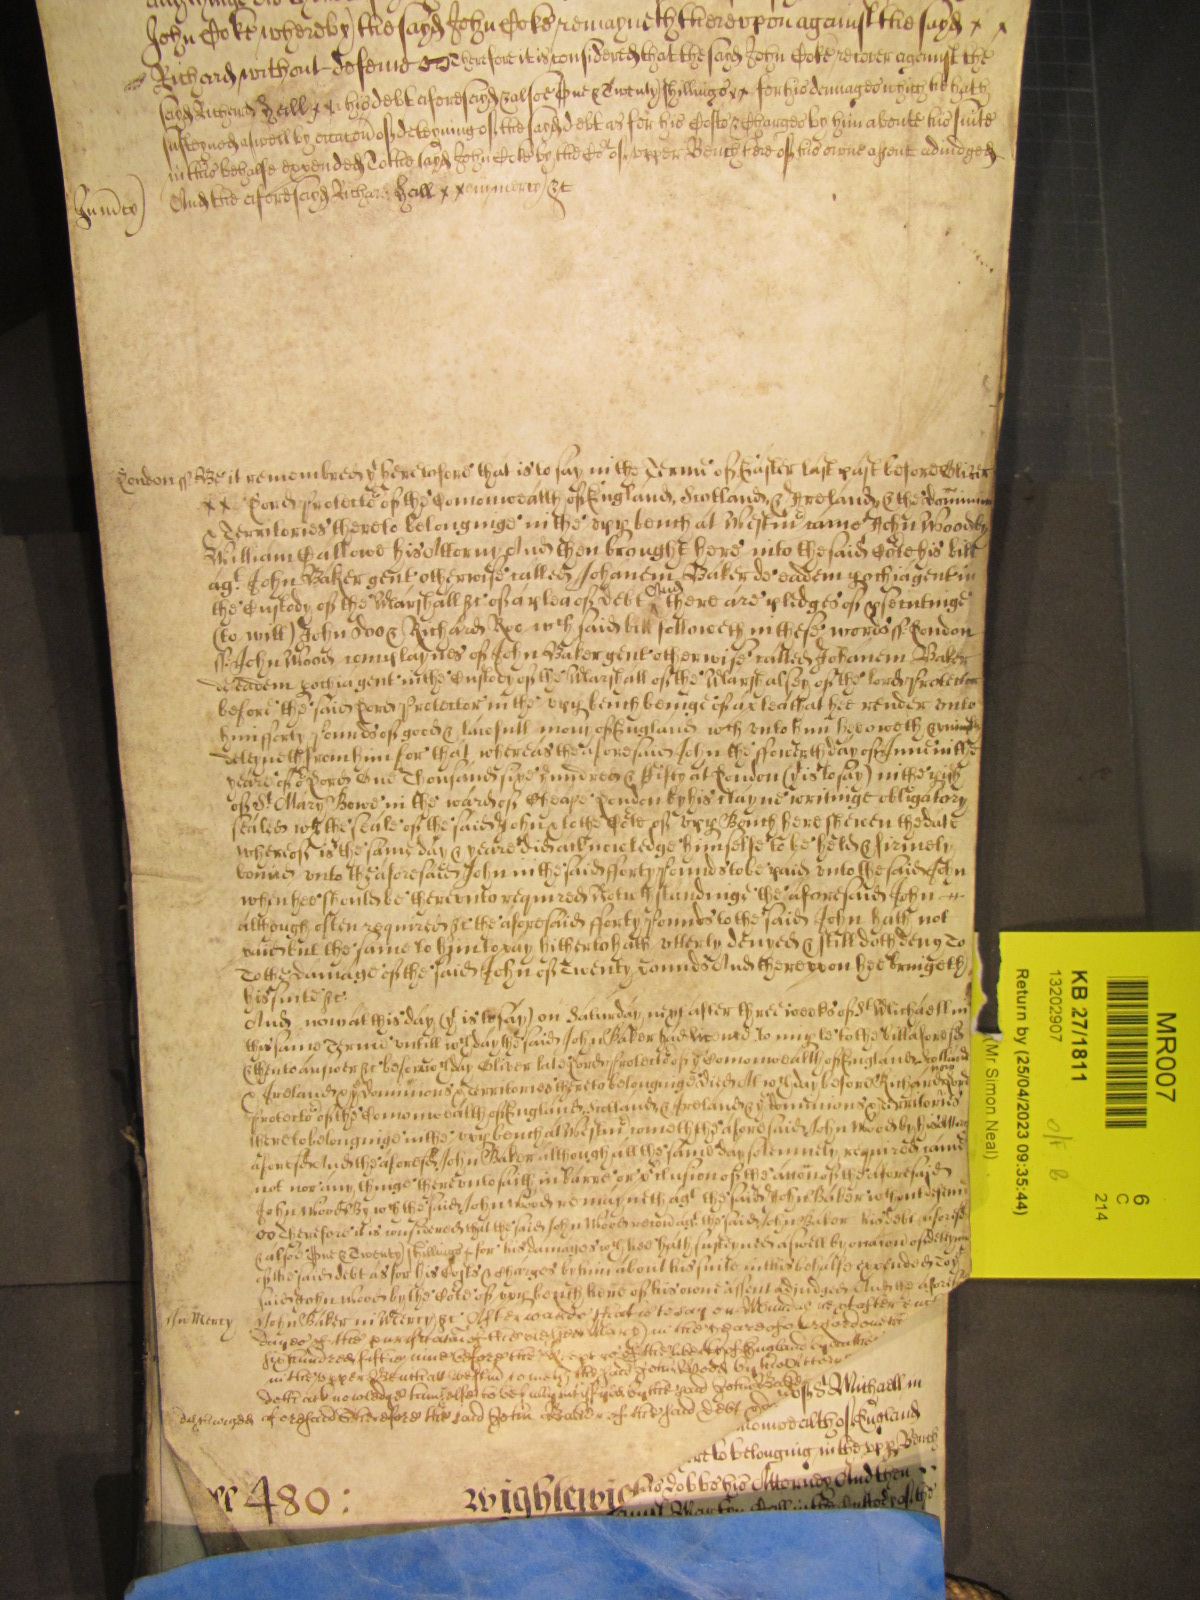 John Coke whereby the sayd John Coke remayneth thereupon against the sayd x x
Richard without defence Therefore it is considered that the sayd John Coke recover against the
sayd Richard Hall x x his debt aforesayd & alsoe One & Twenty shillings x x for his damages which he hath
susteyned aswell by occasion of deteyning of the sayd debt as for his Costs & Charges by him aboute his suite
in this behalfe expended To the sayd John Coke by the Cot of upper Bench here of his owne assent adiudged
And the aforesayd Richard Hall x x in mercy &c
In mcy)
London ss Be it remembred yt heretofore that is to say in the Terme of Easter last past before Oliver
x x Lord Protector of the Comonwealth of England, Scotland, & Ireland, & the dominions
& Territories thereto belonginge in the upp bench at Westm came John Wood by
William Callowe his Attorny And then brought here into the said Cote his bill
agt John Baker gent otherwise called Johanem Baker de eadem pochia gent in
the Custody of the Marshall &c of a plea of debt And there are pledges of psecutinge
(to witt) John Doo & Richard Roo wch said bill followeth in these words ss London
ss John Wood complaynes of John Baker gent otherwise called Johanem Baker
de eadem pochia gent in the Custody of the Marshall of the Marshalsey of the lord Protector
before the said Lord Protector in the upp bench beinge of a plea that hee render unto
him fforty Pounds of good & lawfull mony of England wch unto him hee oweth &
deteyneth from him for that whereas the aforesaid John the ffowerth day of June in the
yeare of or Lord One Thousand sixe hundred & ffifty at London (yt is to say) in the pish
of St Mary Bowe in the ward of Cheape London by his ctayne writinge obligatory
sealed wth the seale of the said John & to the Cote of upp Bench here shewen the date
whereof is the same day & yeare did acknowledge himselfe to be held & firmely
bound unto the aforesaid John in the said fforty Pounds to be paid unto the said John
when hee should be thereunto required Notwthstandinge the aforesaid John
although often required &c the aforesaid fforty Pounds to the said John hath not
paid but the same to him to pay hitherto hath utterly denyed & still doth deny To
To the damage of the said John of Twenty pounds And thereupon hee bringeth
his suite &c
And now at this day (yt is to say) on Saturday next after three weeks of St Michaell in
this same Terme untill wch day the said John Baker had licence to imple to the bill aforesd
& then to answer &c before wch day Oliver late Lord Protector of ye Comonwealth of England Scotland
& Ireland & ye dominions & Territories thereto belonginge died At wch day before Richard now Lord
Protector of the Comonwealth of England, Scotland, & Ireland & ye dominions & Territories
thereto belonginge in the upp bench at Westm cometh the aforesaid John Wood by his Attorny
aforesd And the aforesd John Baker although att the same day solemnely required came
not nor any thinge thereunto saith in barre or pclusion of the accon of the aforesaid
John Wood By wch the said John Wood remayneth agt the said John Baker wthout defence
Therefore it is considered that the said John Wood recover agt the said John Baker his debt aforesd
& alsoe One & Twenty shillings for his damages wch hee hath susteyned aswell by occasion of deteyninge
of the said debt as for his Costs & Charges by him about his suite in this behalfe expended To ye
said John Wood by the Cote of upp bench here of his owne assent adjudged And the aforesd
In Mercy
John Baker in Mercy &c Afterwards that is to say on Munday next after
dayes of the purificacon of the blessed Mary in the yeare of or Lord one thousand
six hundred fiftie nine before the keepers of the libertye of England
in the upper Bench at Westm cometh the said John Wood by his Attorny
doth acknowledge himselfe to be fully satisfied by the said John Baker
discharged
aforesaid Therefore the said John Baker of the said debt
of St Michaell in
Comonwealth of England
to belonging in the upp Bench
his Attorney And then
in the Custody of the
480 :
Wightwic
MR007
KB 27/1811
13202907
Return by (25/04/2023 09:35:44)
(Mr Simon Neal)
6
C
214